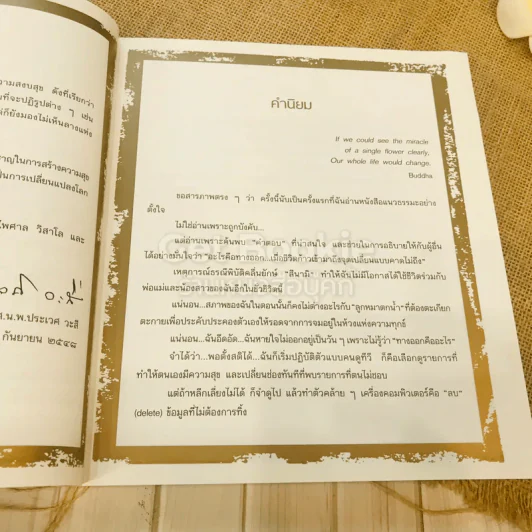 วามสงบสุข ดังที่เรียกว่า
ที่จะปฏิรูปต่าง ๆ เช่น
ก็ยังมองไม่เห็นลางแห่ง
าญในการสร้างความสุข
ป็นการเปลี่ยนแปลงโลก
ไพศาล วิสาโล และ
ศ.น.พ.ประเวศ วะสี
กันยายน ๒๕๔๘
คำนิยม
If we could see the miracle
of a single flower clearly,
Our whole life would change.
Buddha
ขอสารภาพตรง ๆ ว่า ครั้งนี้นับเป็นครั้งแรกที่ฉันอ่านหนังสือแนวธรรมะอย่าง
ตั้งใจ
ไม่ใช่อ่านเพราะถูกบังคับ...
แต่อ่านเพราะค้นพบ “คำตอบ” ที่น่าสนใจ และช่วยในการอธิบายให้กับผู้อื่น
ได้อย่างมั่นใจว่า “อะไรคือทางออก...เมื่อชีวิตก้าวเข้ามาถึงจุดเปลี่ยนแบบคาดไม่ถึง”
เหตุการณ์ธรณีพิบัติคลื่นยักษ์ “สึนามิ” ทำให้ฉันไม่มีโอกาสได้ใช้ชีวิตร่วมกับ
พ่อแม่และน้องสาวของฉันอีกในชั่วชีวิตนี้
แน่นอน...สภาพของฉันในตอนนั้นก็คงไม่ต่างอะไรกับ “ลูกหมาตกน้ำ” ที่ต้องตะเกียก
ตะกายเพื่อประคับประคองตัวเองให้รอดจากการจมอยู่ในห้วงแห่งความทุกข์
แน่นอน...ฉันอึดอัด...ฉันหายใจไม่ออกอยู่เป็นวัน ๆ เพราะไม่รู้ว่า “ทางออกคืออะไร”
จำได้ว่า...พอตั้งสติได้...ฉันก็เริ่มปฏิบัติตัวแบบคนดูทีวี ก็คือเลือกดูรายการที่
ทำให้ตนเองมีความสุข และเปลี่ยนช่องทันทีที่พบรายการที่ตนไม่ชอบ
แต่ถ้าหลีกเลี่ยงไม่ได้ ก็จำดูไป แล้วทำตัวคล้าย ๆ เครื่องคอมพิวเตอร์คือ “ลบ”
(delete) ข้อมูลที่ไม่ต้องการทิ้ง